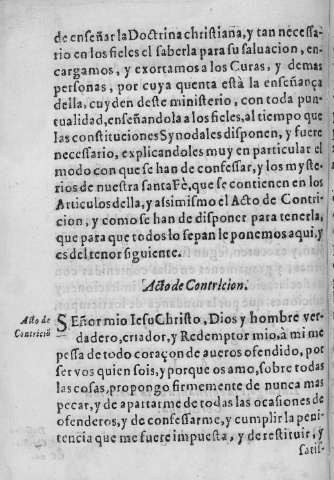 de enseñar la Doctrina christiana, y tan necessa-
rio en los fieles el saberla para su saluacion, en-
cargamos, y exortamos a los Curas, y demas
personas, por cuya quenta està la enseñança
della, cuyden deste ministerio, con toda pun-
tualidad, enseñandola a los fieles, al tiempo que
las constituciones Synodales disponen, y fuere
necessario, explicandoles muy en particular el
modo con que se han de confessar, y los myste-
rios de nuestra santa Fè, que se contienen en los
Articulos della, y assimismo el Acto de Contri-
cion, y como se han de disponer para tenerla,
que para que todos lo sepan le ponemos aqui, y
es del tenor siguiente.
Acto de Contricion.
Acto de
Contriciō
SEñor mio Iesu Christo, Dios y hombre ver-
dadero, criador, y Redemptor mio, à mi me
pessa de todo coraçon de aueros ofendido, por
ser vos quien sois, y porque os amo, sobre todas
las cosas, propongo firmemente de nunca mas
pecar, y de apartarme de todas las ocasiones de
ofenderos, y de confessarme, y cumplir la peni-
tencia que me fuere impuesta, y de restituir, y
satis-